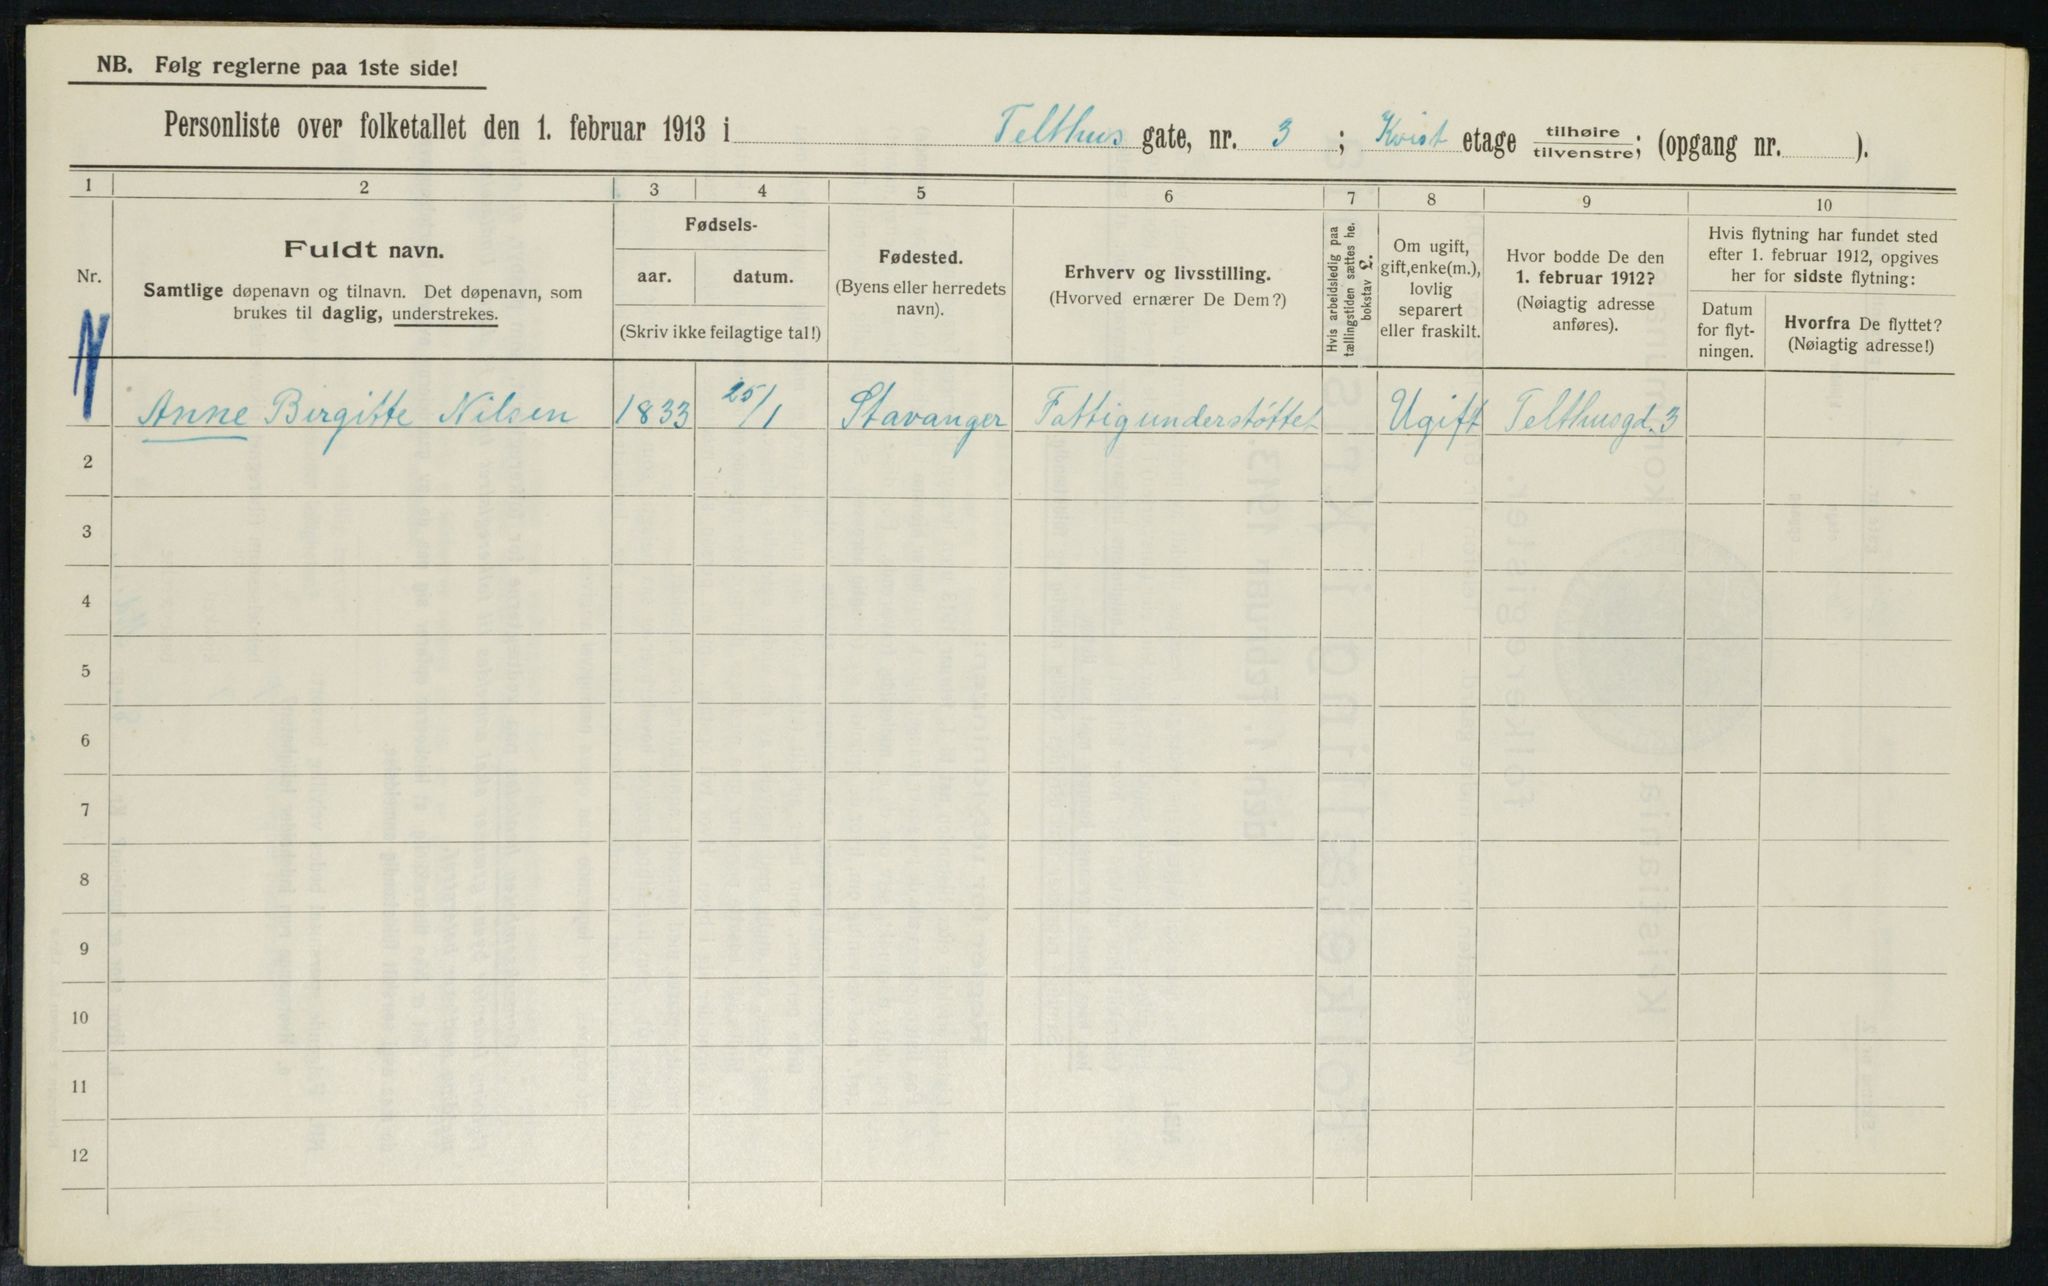 NB. Følg reglerne paa 1ste side!
Personliste over folketallet den 1. februar 1913 i Telthus gate, nr. 3 ; Kvist etage tilhøire / tilvenstre; (opgang nr. ).
1 2 3 4 5 6 7 8 9 10
Nr.
Fuldt navn.
Samtlige døpenavn og tilnavn. Det døpenavn, som
brukes til daglig, understrekes.
Fødsels-
aar. datum.
(Skriv ikke feilagtige tal!)
Fødested.
(Byens eller herredets
navn).
Erhverv og livsstilling.
(Hvorved ernærer De Dem?)
Hvis arbeidsledig paa
tællingstiden sættes he.
bokstav L.
Om ugift,
gift, enke(m.),
lovlig
separert
eller fraskilt.
Hvor bodde De den
1. februar 1912?
(Nøiagtig adresse
anføres).
Hvis flytning har fundet sted
efter 1. februar 1912, opgives
her for sidste flytning:
Datum
for flyt-
ningen.
Hvorfra De flyttet?
(Nøiagtig adresse!)
N Anne Birgitte Nilsen 1833 25/1 Stavanger Fattigunderstøttet Ugift Telthusgd. 3
2
3
4
5
6
7
8
9
10
11
12